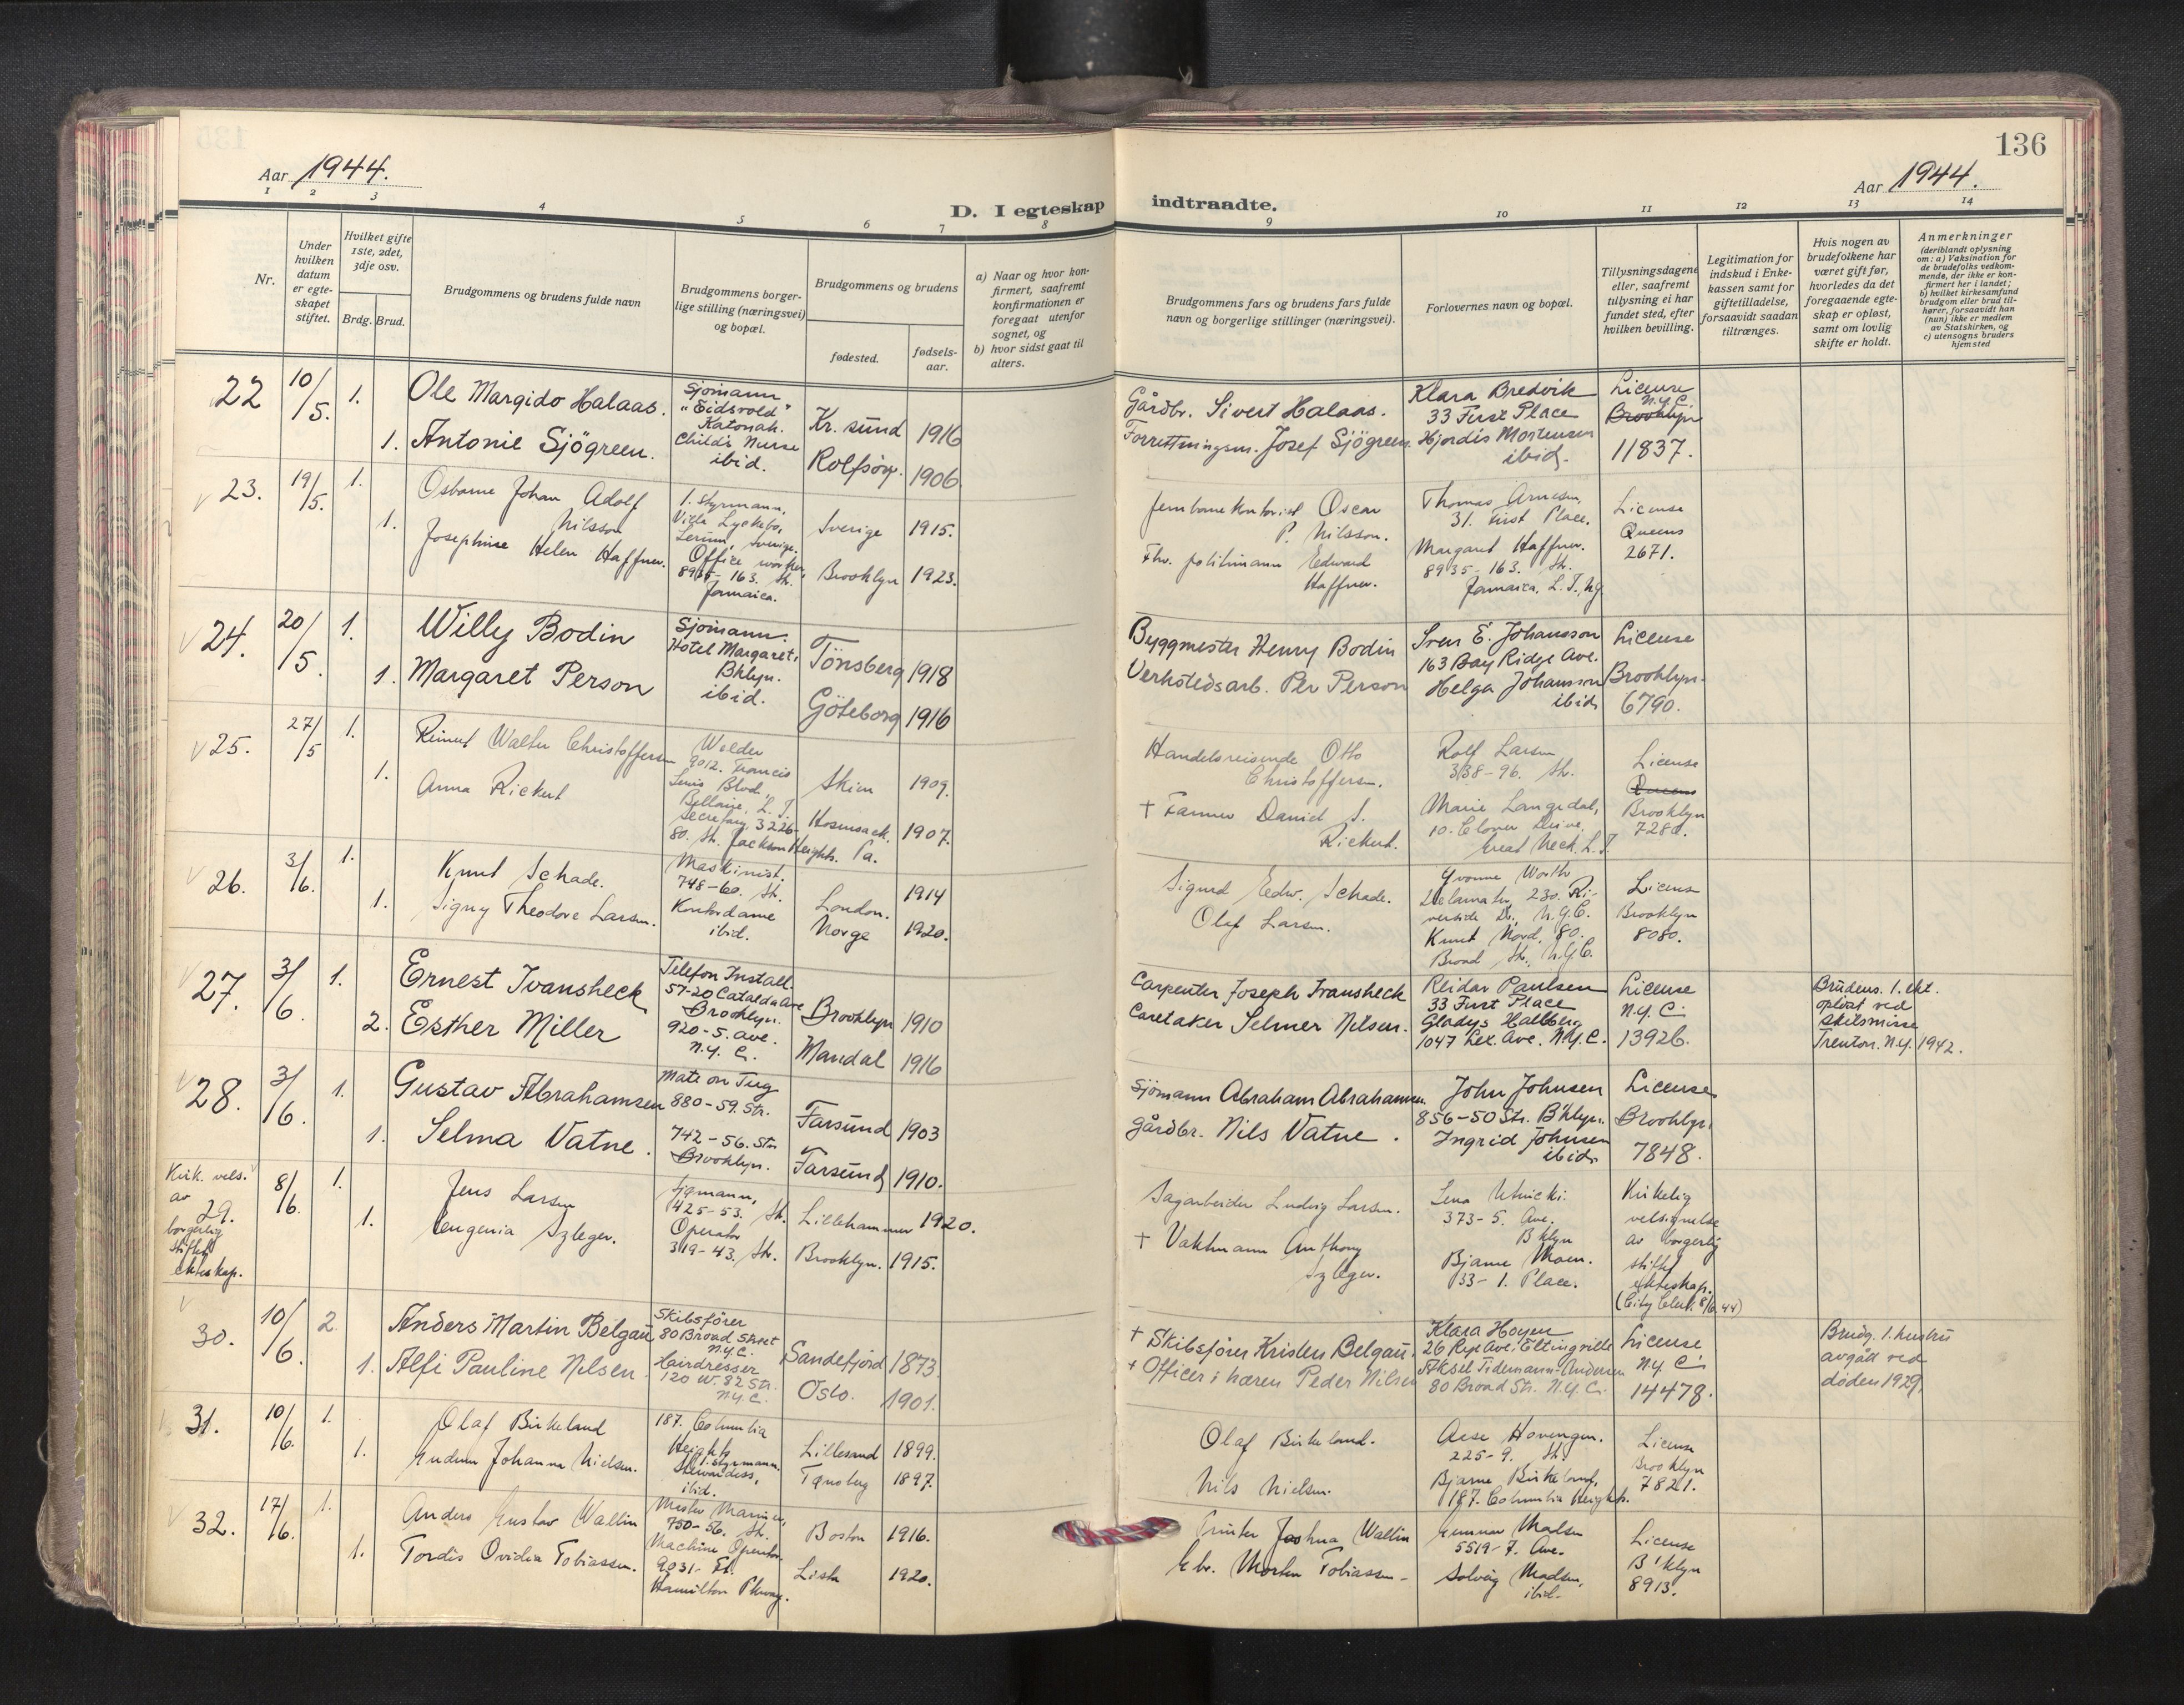 136
Aar 1944.
Aar 1944.
D. I egteskap indtraadte.
1 2 3 4 5 6 7 8 9 10 11 12 13 14
Nr.
Under hvilken datum er egteskapet stiftet.
Hvilket gifte 1ste, 2det, 3dje osv.
Brdg. Brud.
Brudgommens og brudens fulde navn
Brudgommens borgerlige stilling (næringsvei) og bopæl.
Brudgommens og brudens
fødested.
fødselsaar.
a) Naar og hvor konfirmert, saafremt konfirmationen er foregaat utenfor sognet, og
b) hvor sidst gaat til alters.
Brudgommens fars og brudens fars fulde navn og borgerlige stillinger (næringsvei).
Forlovernes navn og bopæl.
Tillysningsdagene eller, saafremt tillysning ei har fundet sted, efter hvilken bevilling.
Legitimation for indskud i Enkekassen samt for giftetilladelse, forsaavidt saadan tiltrænges.
Hvis nogen av brudefolkene har været gift før, hvorledes da det foregaaende egteskap er opløst, samt om lovlig skifte er holdt.
Anmerkninger
(deriblandt oplysning om: a) Vaksination for de brudefolks vedkommende, der ikke er konfirmert her i landet; b) hvilket kirkesamfund brudgom eller brud tilhører, forsaavidt han (hun) ikke er medlem av Statskirken, og c) utensogns bruders hjemsted
22 10/5. 1. Ole Margido Halaas. Sjömann "Eidsvold" Katonah. Kr. sund 1916 Gårdbr. Sivert Halaas. Klara Bredvik 33 First Place License N.Y.C. Brooklyn
1. Antonie Sjögreen. Child's Nurse ibid. Rolfsöy. 1906 Forretningsm. Josef Sjögreen. Hjordis Mortensen ibid. 11837.
23. 19/5. 1. Osborne Johan Adolf Nilsson 1. styrmann, Villa Lyckebo, Lerum, Sverige. Sverige 1915. Jernbanekontorist Oscar P. Nilsson. Thomas Arnesen, 31. First Place. License Queens
1. Josephine Helen Haffner. Office worker, 8935-163. St. Jamaica. Brooklyn 1923. Fhv. politimann Edward Haffner. Margaret Haffner. 8935-163. St. Jamaica, L.I., NY 2671.
24. 20/5. 1. Willy Bodin Sjömann. Hotel Margaret, Bklyn. Tönsberg 1918 Byggmester Henry Bodin Sven E. Johansson 163 Bay Ridge Ave. License
1. Margaret Person ibid. Göteborg 1916 Verkstedsarb. Per Person Helga Johansson ibid. Brooklyn. 6790.
25. 27/5 1. Reinert Walter Christoffersen Welder 9012. Francis Lewis Blvd., Bellaire, L.I. Skien 1909. Handelsreisende Otto Christoffersen. Rolf Larsen 338-96. St. License Queens
1. Anna Rickert Secretary, 3226-80. St. Jackson Heights. Hosensack. Pa. 1907. + Farmer Daniel S. Rickert. Marie Langedal, 10. Clover Drive, Great Neck. L.I. Brooklyn 7280.
26. 3/6. 1. Knut Schade. Maskinist. 748-60. St. London. 1914 Sigurd Edw. Schade. Yvonne Worth Delamater, 230. Riverside Dr., N.Y.C. License
1. Signy Theodore Larsen. Kontordame ibid. Norge 1920. Olaf Larsen. Knut Nord, 80. Broad St., N.Y.C. Brooklyn 8080.
27. 3/6. 1. Ernest Ivansheck Telefon Install. 57-20 Catalda Ave Brooklyn. Brooklyn 1910 Carpenter Joseph Ivansheck Reidar Paulsen 33 First Place License N.Y.C. Brudens 1. ekt. opløst ved skilsmisse Trenton. N.Y. 1942.
2. Esther Miller 920-5. Ave. N.Y.C. Mandal 1916 Caretaker Selmer Nilsen. Gladys Hallberg 1047 Lex. Ave. N.Y.C. 13926.
28. 3/6. 1. Gustav Abrahamsen Mate on Tug 880-59. Str. Farsund 1903 Sjömann Abraham Abrahamsen. John Johnsen 856-50 Str. B'klyn. License
1. Selma Vatne. 742-56. Str. Brooklyn. Farsund 1910. Gårdbr. Nils Vatne. Ingrid Johnsen ibid. Brooklyn. 7848.
Kirk. vels. av borgerlig stiftet ekteskap.
29. 8/6. 1. Jens Larsen Sjømann, 425-53. St. Lillehammer 1920. Sagarbeider Ludvig Larsen. Lena Uhnicki. 373-5. Ave. Bklyn Kirkelig velsignelse av borgerlig stiftet ekteskap. (City Clerk 8/6 44)
1. Eugenia Szleger. Operator 319-43. St. Brooklyn. 1915. + Vaktmann Anthony Szleger. Bjarne Moen. 33-1. Place.
30. 10/6. 2. Anders Martin Belgau Skibsfører 80 Broad Street N.Y.C. Sandefjord 1873. + Skibsfører Kristen Belgau. Klara Hoyen 26 Rye Ave. Eltingville License N.Y.C. Brudg. 1. hustru avgått ved døden 1929.
1. Alfi Pauline Nilsen. Hairdresser 120 W. 82 Str. N.Y.C. Oslo. 1901. + Officer i hæren Peder Nilsen Aksel Tidemann-Andersen 80 Broad Str. N.Y.C. 14478.
31. 10/6. 1. Olaf Birkeland 187. Columbia Heights 1. styrmann. Lillesand 1899. Olaf Birkeland. Aase Hovengen. 225-9. St. License Brooklyn
1. Gudrun Johanne Nielsen. Stewardess, ibid. Tønsberg 1897. Nils Nielsen. Bjarne Birkeland, 187. Columbia Heights. 7821.
32. 17/6. 1. Anders Gustav Wallin Master Mariner, 750-56. St. Boston 1916. Printer Joshua Wallin Gunnar Madsen 5519-7. Ave. License
1. Tordis Ovidia Tobiassen. Machine Operator. 9031-Ft. Hamilton Pkway. Lista 1920. Gbr. Morten Tobiassen- Solveig Madsen, ibid. B'klyn 8913.